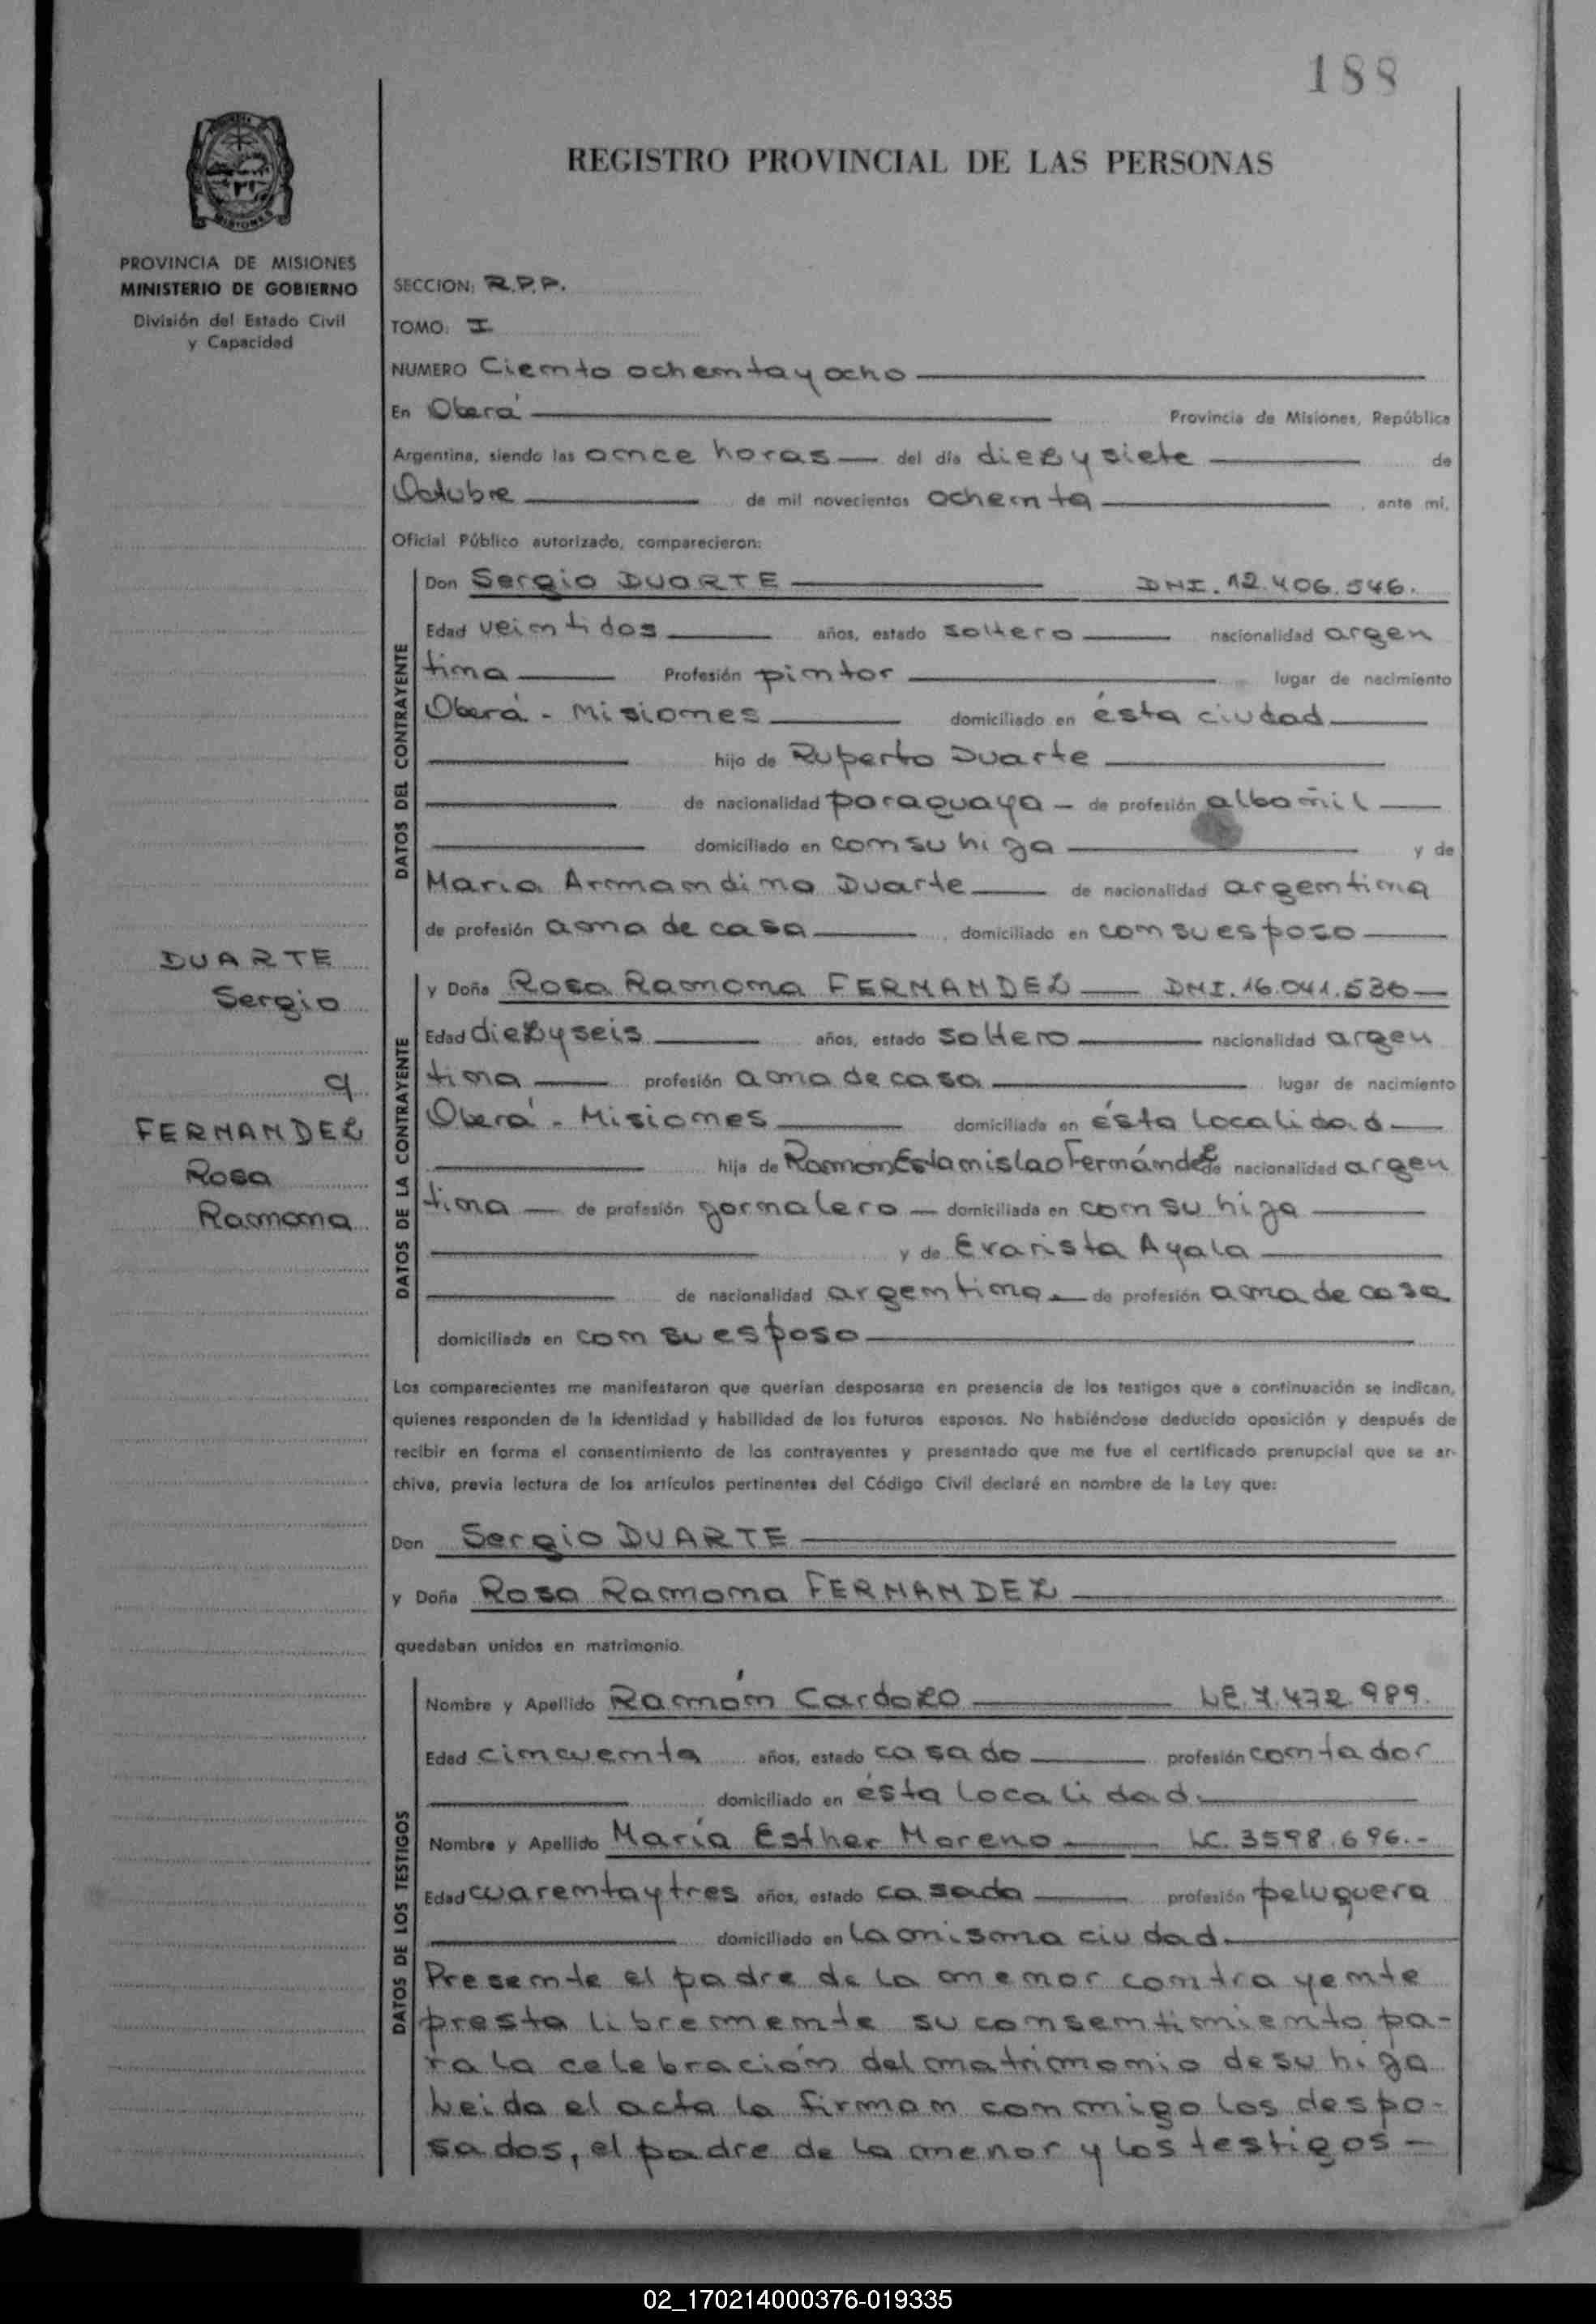 188
REGISTRO PROVINCIAL DE LAS PERSONAS
MISIONES
PROVINCIA DE MISIONES
MINISTERIO DE GOBIERNO
División del Estado Civil
y Capacidad
SECCION: R.P.P.
TOMO: I
NUMERO Ciento ochenta y ocho
En Oberá Provincia de Misiones, República
Argentina, siendo las once horas del día diez y siete de
Octubre de mil novecientos ochenta, ante mí,
Oficial Público autorizado, comparecieron:
DATOS DEL CONTRAYENTE
Don Sergio DUARTE DNI. 12.406.546.
Edad veintidos años, estado soltero nacionalidad argen
tina Profesión pintor lugar de nacimiento
Oberá - Misiones domiciliado en ésta ciudad
hijo de Ruperto Duarte
de nacionalidad paraguaya de profesión albañil
domiciliado en con su hija y de
Maria Armandina Duarte de nacionalidad argentina
de profesión ama de casa, domiciliado en con su esposo
DUARTE
Sergio
y
FERNANDEZ
Rosa
Ramona
DATOS DE LA CONTRAYENTE
y Doña Rosa Ramona FERNANDEZ DNI. 16.041.536
Edad diez y seis años, estado soltero nacionalidad argen
tina profesión ama de casa lugar de nacimiento
Oberá - Misiones domiciliada en ésta localidad
hija de Ramon Estanislao Fernández de nacionalidad argen
tina de profesión jornalero domiciliada en con su hija
y de Evarista Ayala
de nacionalidad argentina de profesión ama de casa
domiciliada en con su esposo
Los comparecientes me manifestaron que querían desposarse en presencia de los testigos que a continuación se indican,
quienes responden de la identidad y habilidad de los futuros esposos. No habiéndose deducido oposición y después de
recibir en forma el consentimiento de los contrayentes y presentado que me fue el certificado prenupcial que se ar-
chiva, previa lectura de los artículos pertinentes del Código Civil declaré en nombre de la Ley que:
Don Sergio DUARTE
y Doña Rosa Ramona FERNANDEZ
quedaban unidos en matrimonio.
DATOS DE LOS TESTIGOS
Nombre y Apellido Ramón Cardozo LE. 7.472.989.
Edad cincuenta años, estado casado profesión contador
domiciliado en ésta localidad.
Nombre y Apellido María Esther Moreno LC. 3598.696.-
Edad cuarenta y tres años, estado casada profesión peluquera
domiciliado en la misma ciudad.
Presente el padre de la menor contrayente
presta libremente su consentimiento pa-
ra la celebración del matrimonio de su hija
Leida el acta la firman conmigo los despo-
sados, el padre de la menor y los testigos -
02_170214000376-019335